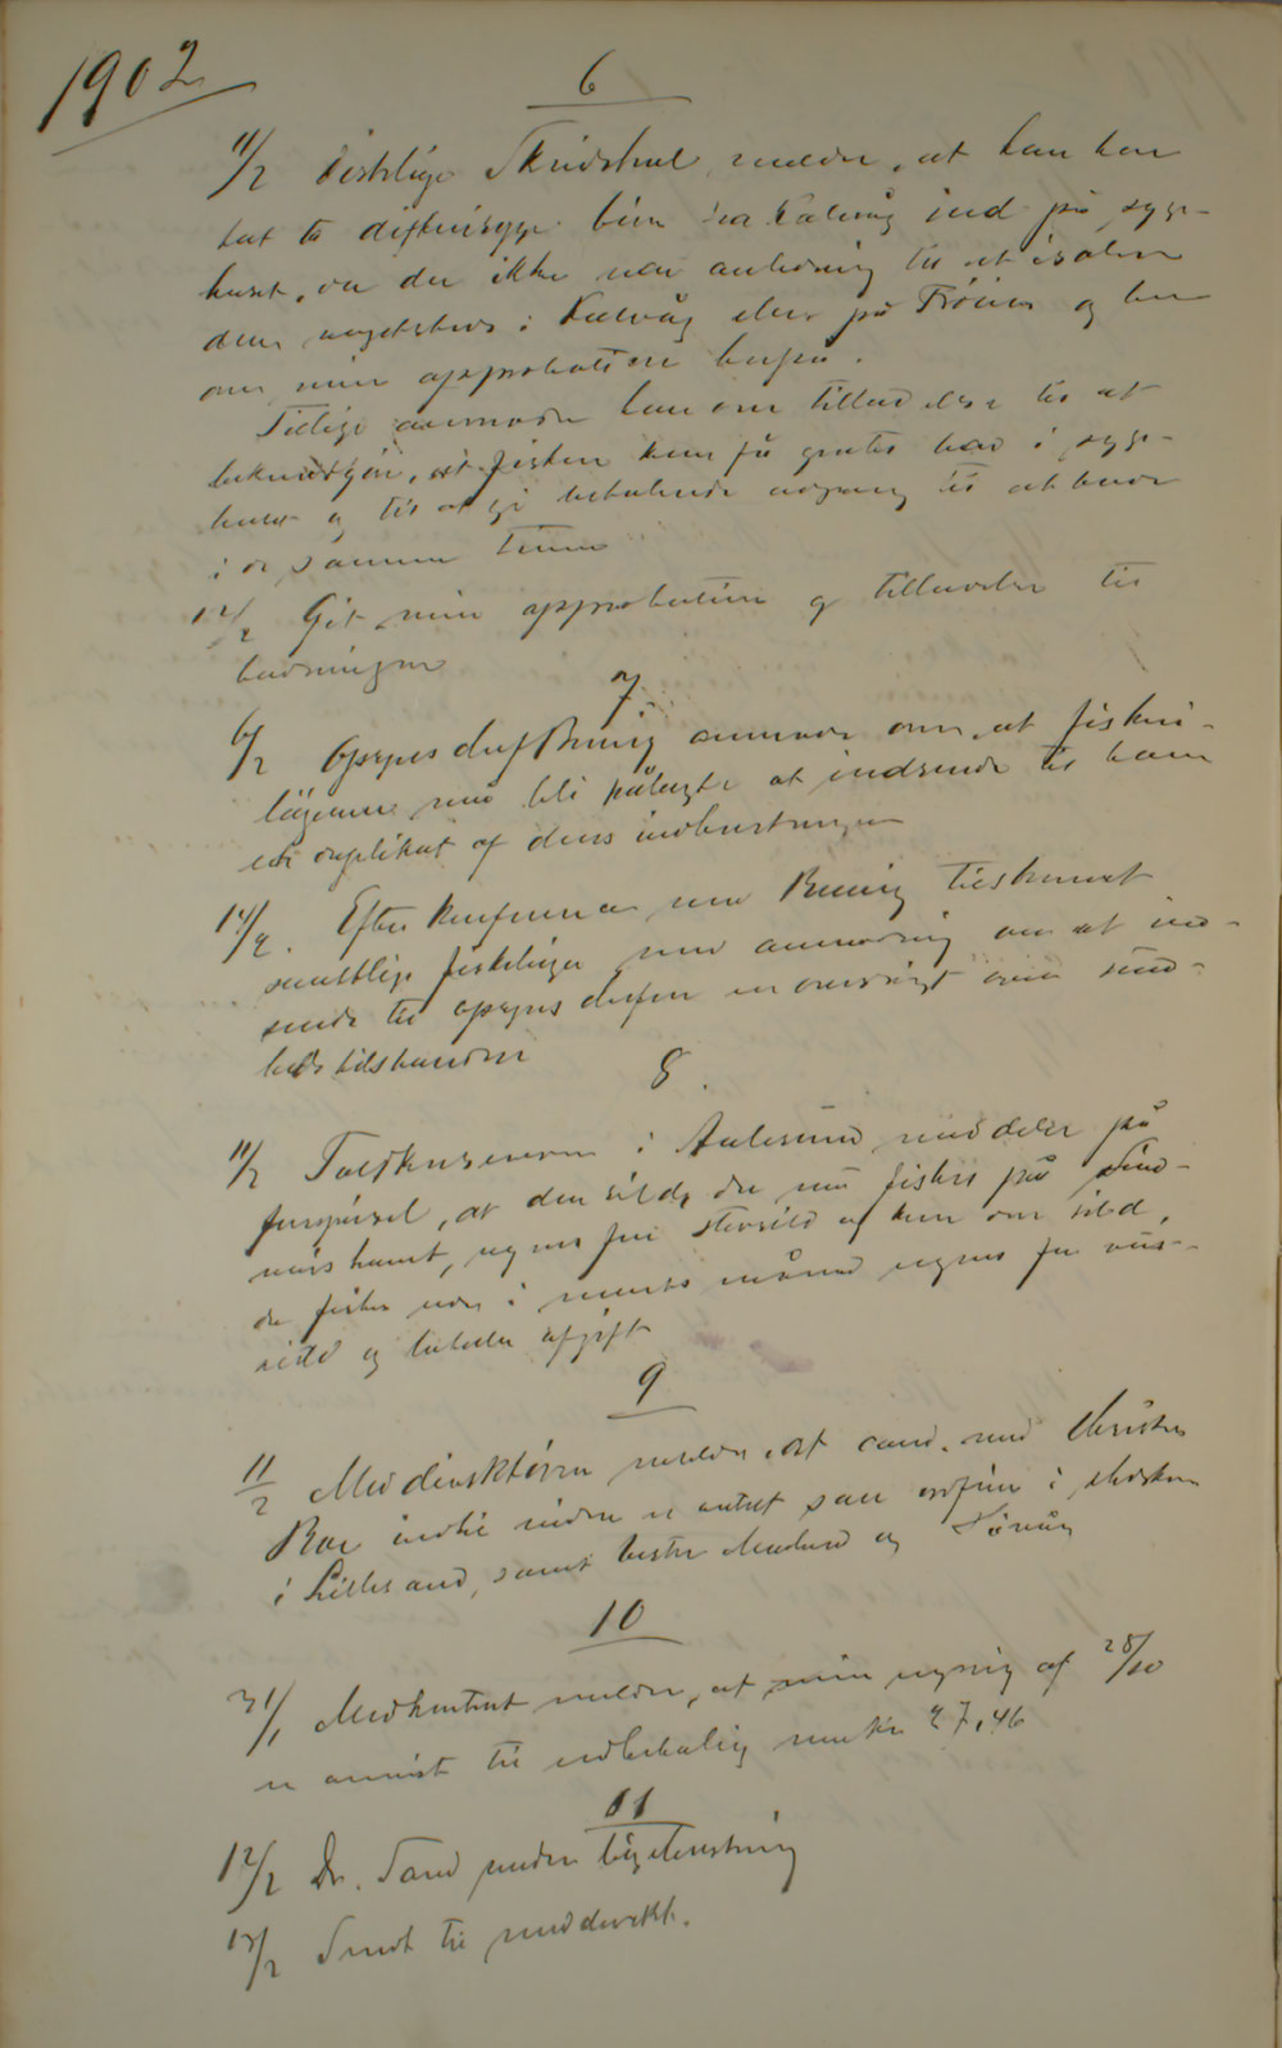 1902
6
11/2 Fiskelæge Skeidshul melder, at han har
tat to difterisyge børn fra Kalvåg ind på syge-
huset, da der ikke var anledning til at isolere
dem nogetsteds i Kalvåg eller på Frøien og ber
om min approbation herpå.
Tidlige anmoder han om tilladelse til at
bekundtgjøre, at fiskere kan få gratis bad i syge-
huset og til at gi betalende adgang til at bade
i de samme timer
12/2 Git min approbation og tilladelse til
badningen
7.
6/2 Opsynschef Bruig anmoder om, at fiskeri-
lægerne må bli pålagte at indsende til ham
et duplikat af deres indberetninger
14/2. Efter konferance med Bruig tilskrevet
samtlige fiskelæger med anmodning om at ind-
sende til opsynschefen en oversigt over sund-
hedstilstanden
8.
11/2 Toldkassereren i Aalesund meddeler på
forespørsel, at den sild, der nu fiskes på Sund-
mørskanten, regnes for storsild og kun om sild,
der fiskes ude i marts måned regnes for vår-
sild og betaler afgift
9
11/2 Meddirektøren melder, at cand. med Christen
Roe indtil videre er antat som ordfør i
i Lillesand, samt Vestre Moland og Høvåg
10
31/1 Medkontoret melder, at min regning af 28/10
er anvist til udbetaling med kr 27,46
11
12/2 Dr. Sand sender lægeberetning
13/2 Sendt til meddirekt.